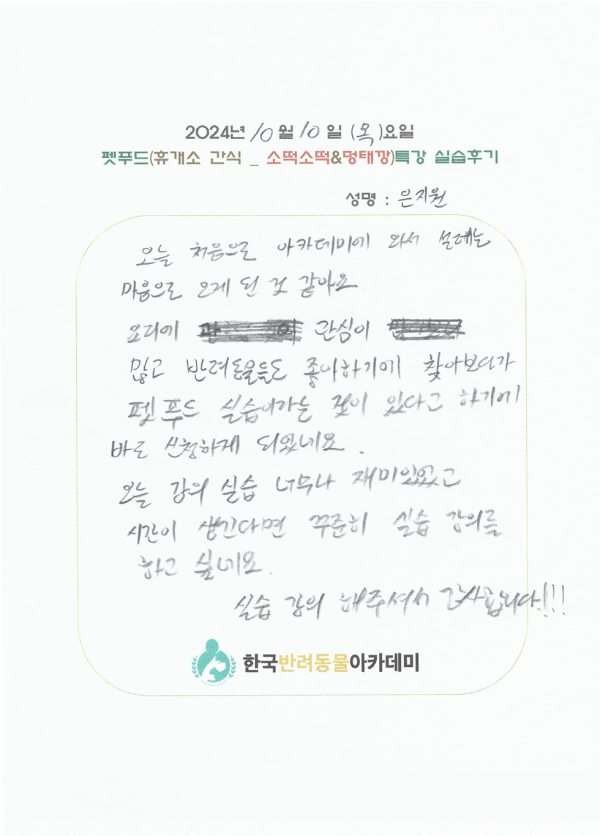 2024년 10월 10일 (목)요일
펫푸드(휴개소 간식 _ 소떡소떡&멍태깡)특강 실습후기
성명 : 은지원
오늘 처음으로 아카데미에 와서 설레는
마음으로 오게 된 것 같아요
요리에 관심이
많고 반려동물들도 좋아하기에 찾아보다가
펫푸드 실습이라는 것이 있다고 하기에
바로 신청하게 되었네요.
오늘 강의 실습 너무나 재미있었고
시간이 생긴다면 꾸준히 실습 강의를
하고 싶네요.
실습 강의 해주셔서 감사합니다!!!
한국반려동물아카데미